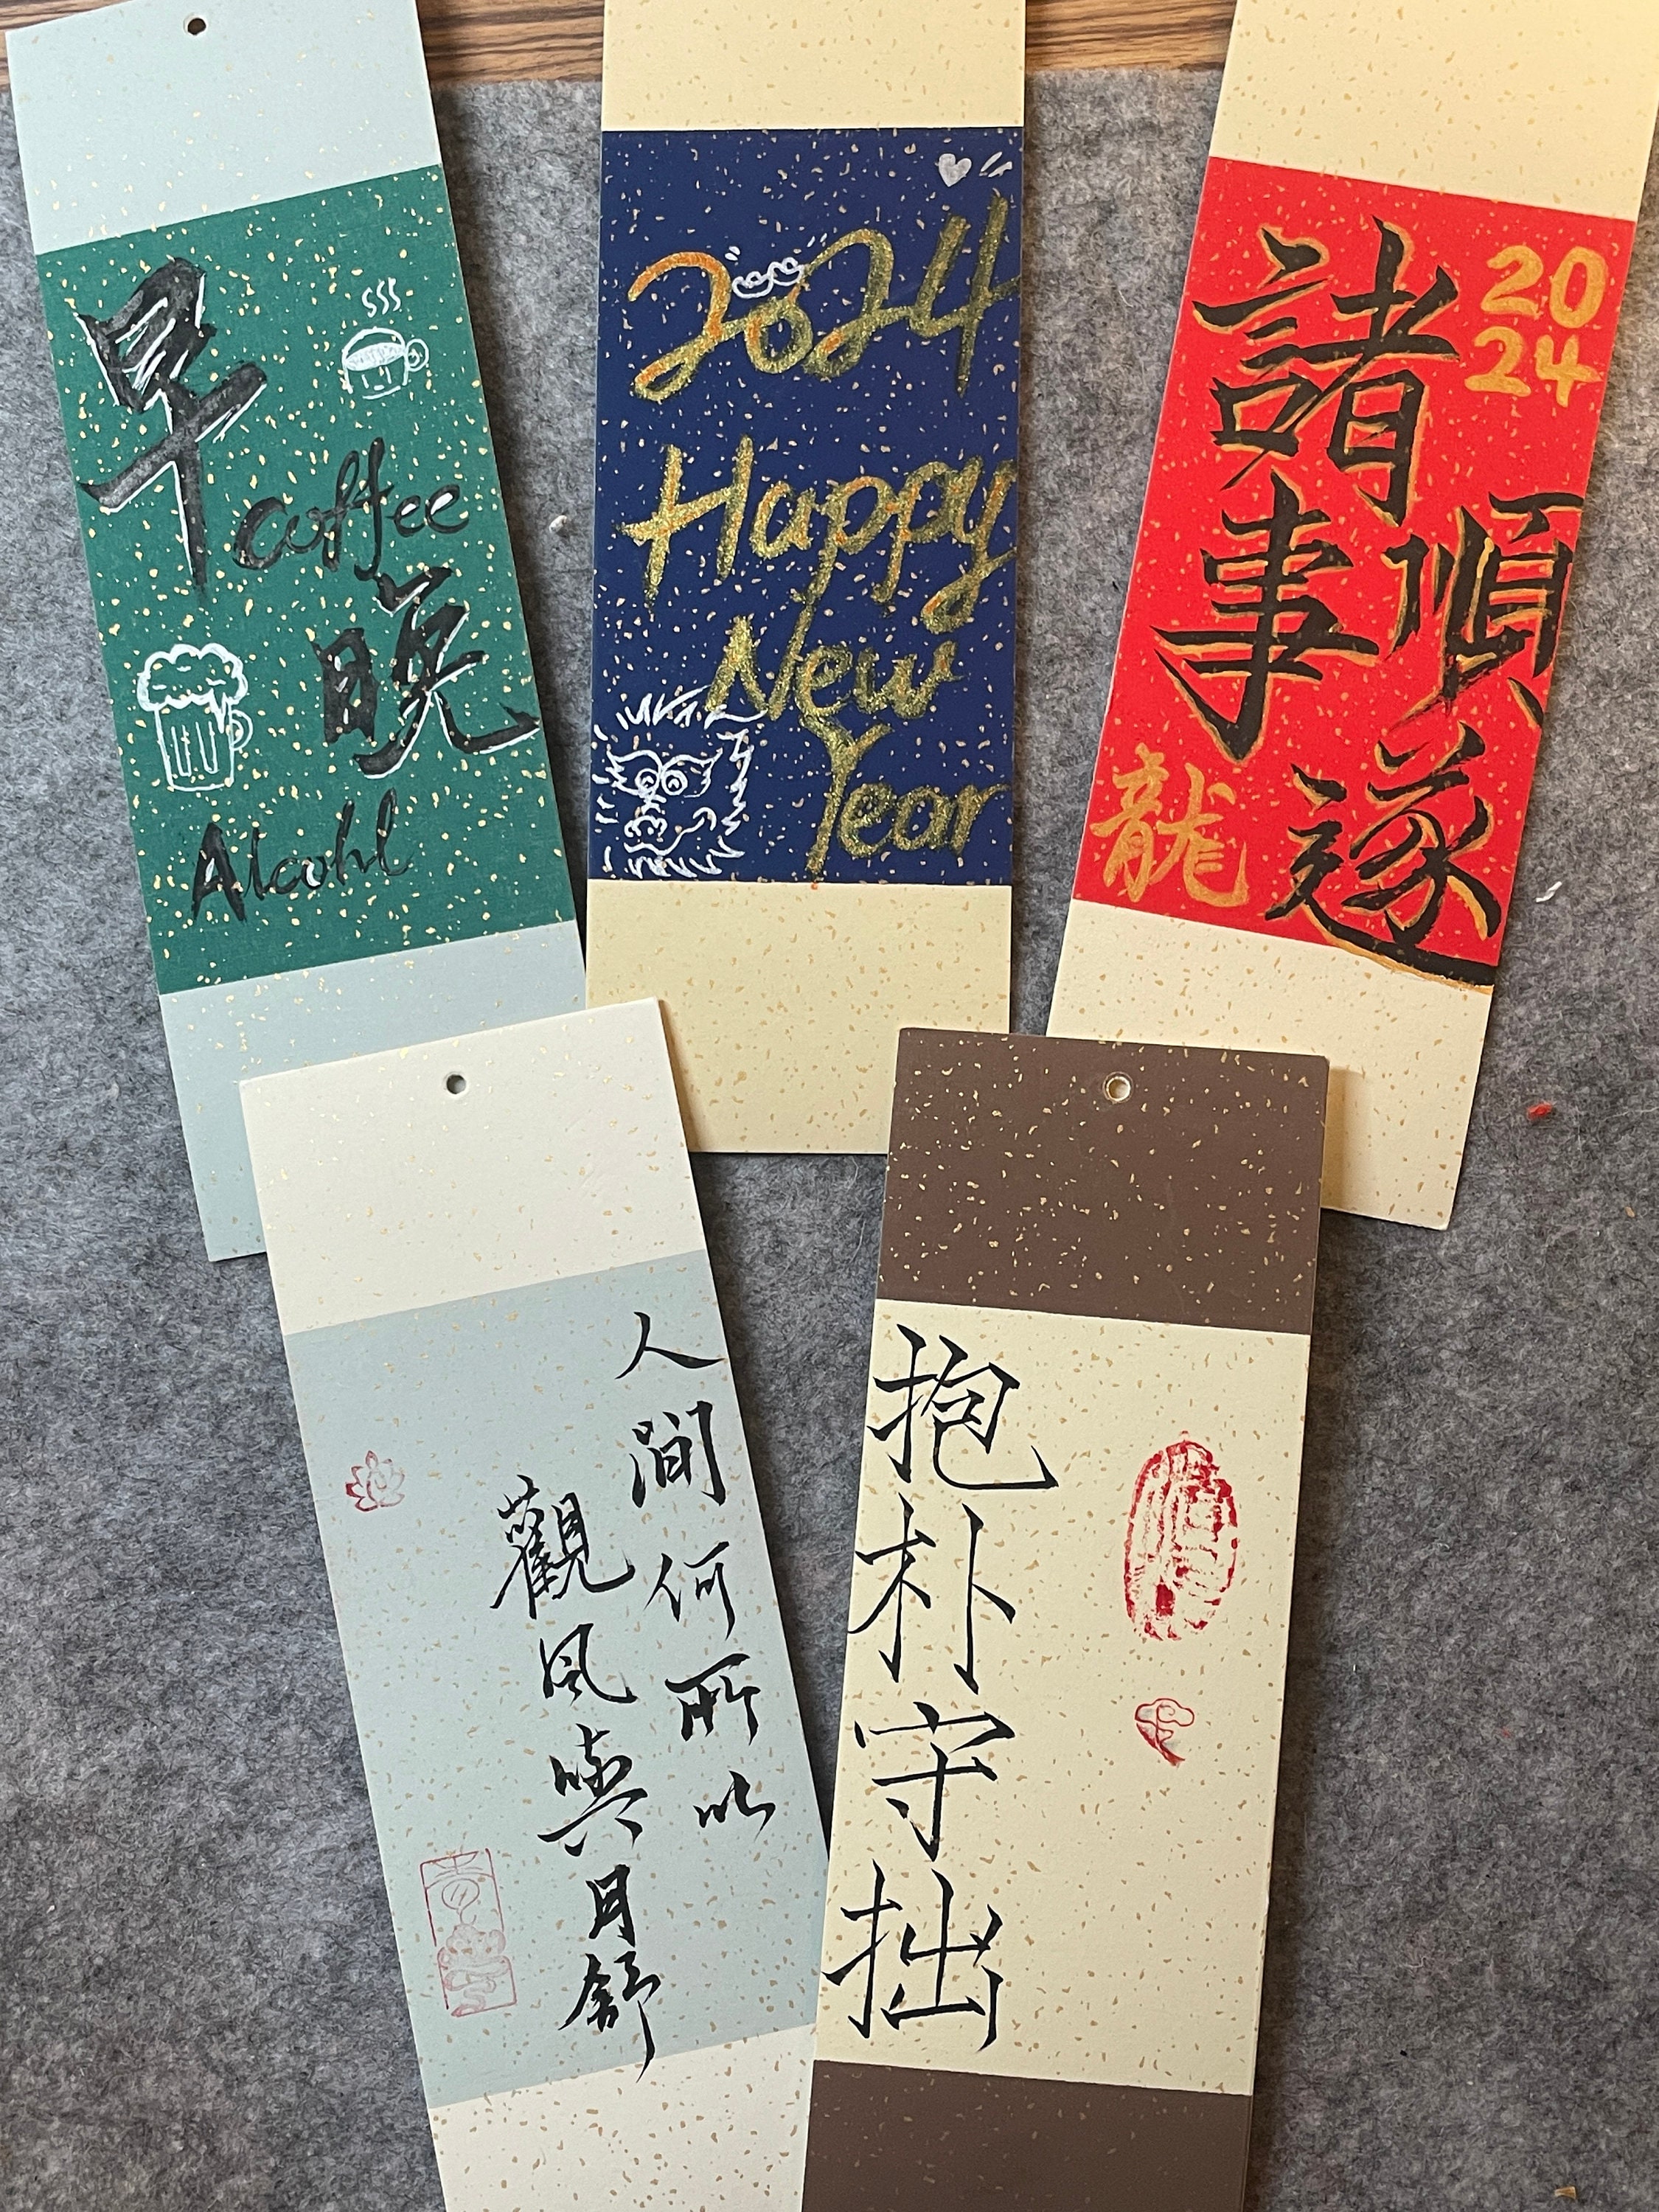 早
coffee
晚
Alcohl
2024
Happy
New
Year
20
24
諸事
順遂
龍
人間何所以
觀風與月舒
抱朴守拙